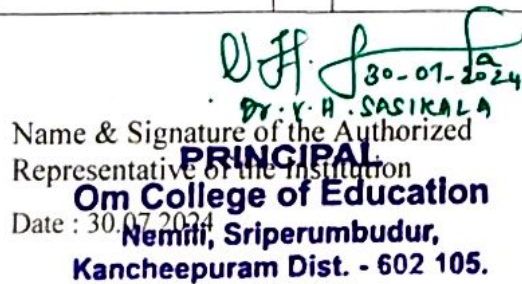 30-07-2024
Dr. V. H. SASIKALA
Name & Signature of the Authorized
Representative of the Institution
PRINCIPAL
Om College of Education
Date : 30.07.2024
Nemili, Sriperumbudur,
Kancheepuram Dist. - 602 105.